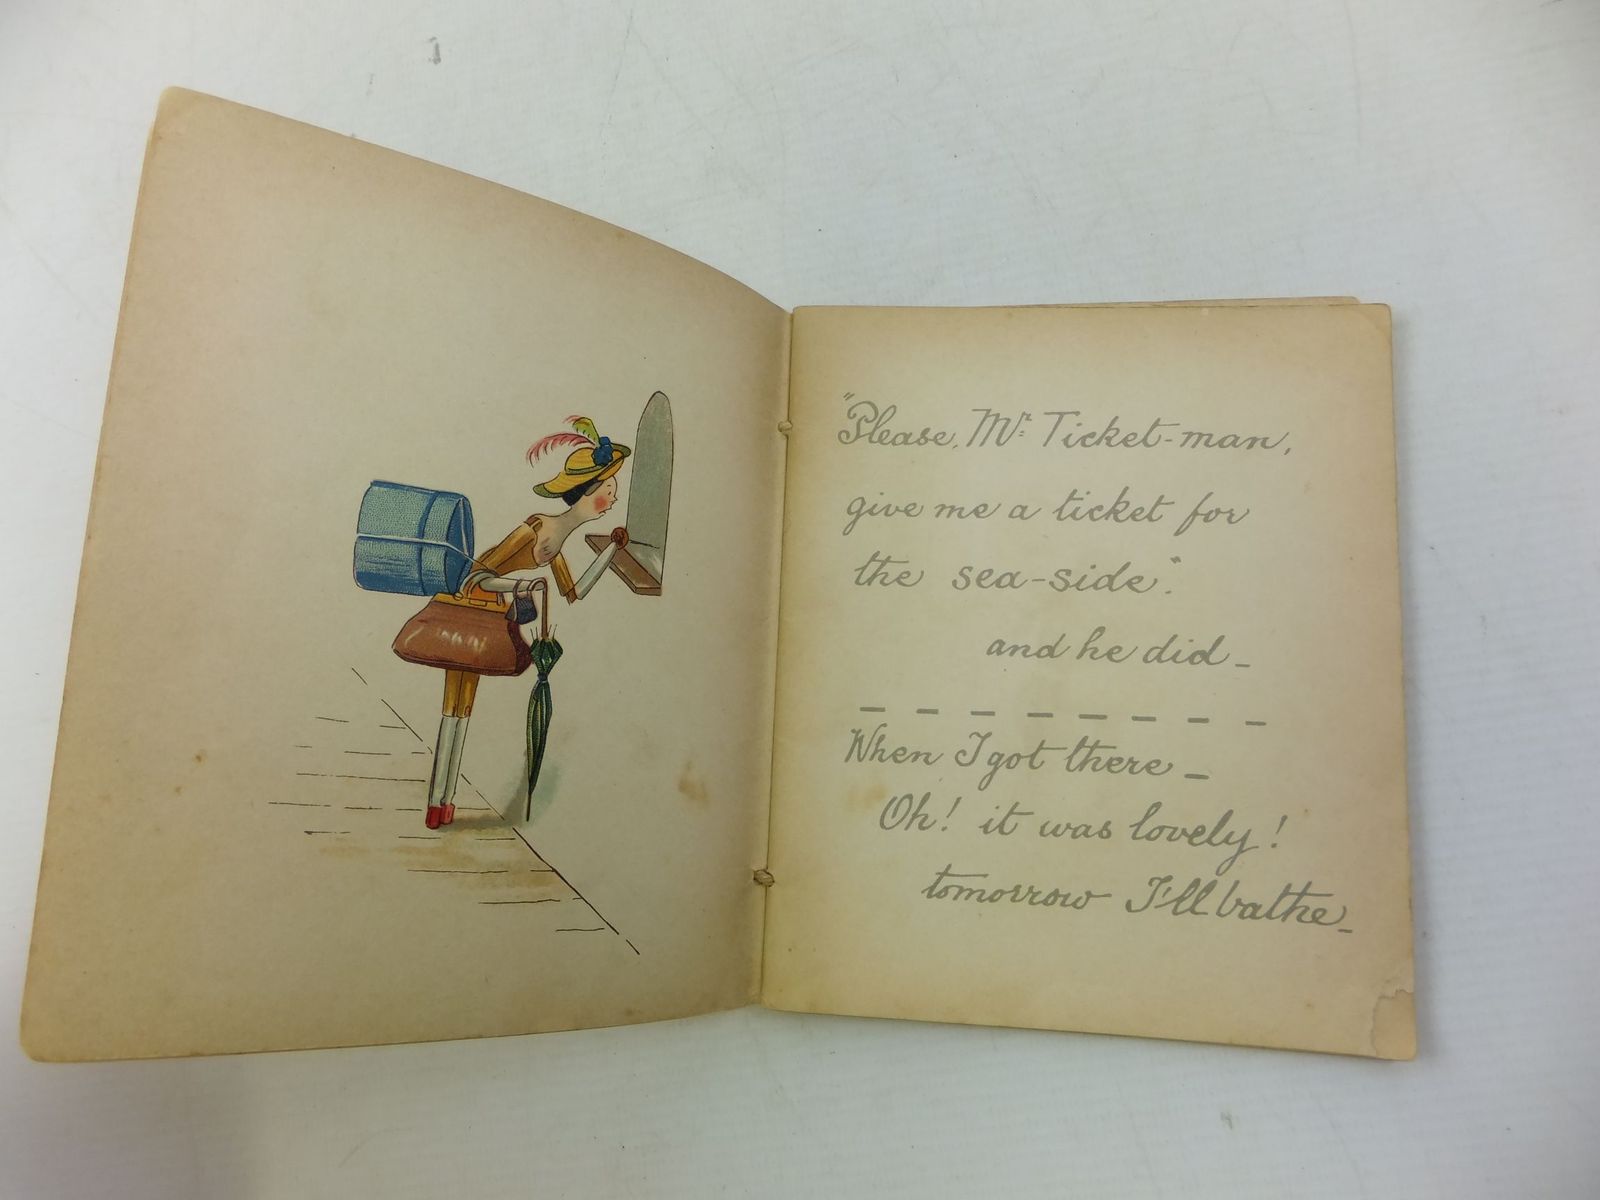 "Please, Mr. Ticket-man,
give me a ticket for
the sea-side".
and he did_
_ _ _ _ _ _ _ _
When I got there _
Oh! it was lovely!
tomorrow I'll bathe_